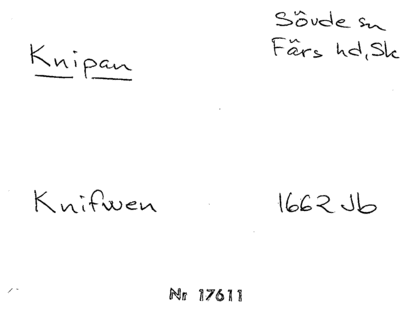 Knipan
Sövde sn
Färs hd, Sk
Knifwen
1662 Jb
Nr 17611